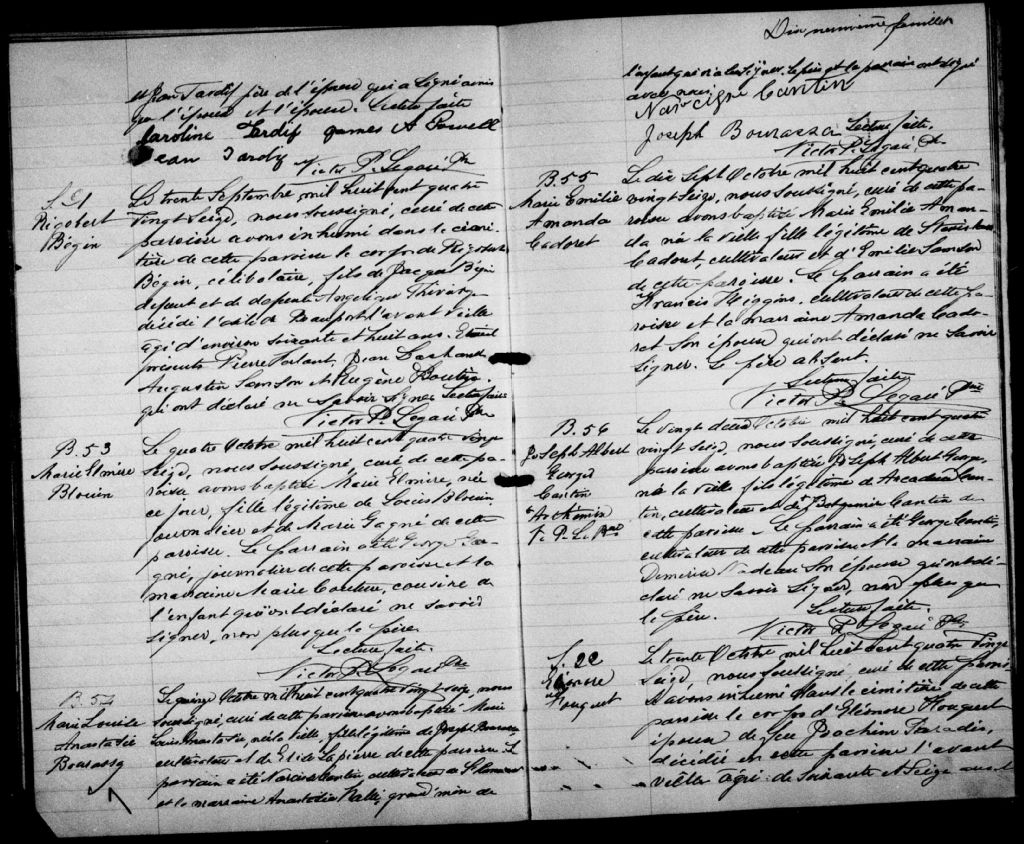 et Jean Tardif père de l'épouse qui a signé ainsi
que l'époux et l'épouse. Lecture faite
Caroline Tardif James A Powell
Jean Tardif
Victor P. Legaré Ptre
S. 21
Rigobert
Bégin
Le trente Septembre mil huit cent quatre
vingt Seize, nous soussigné, curé de cette
paroisse avons inhumé dans le cime-
tière de cette paroisse le corps de Rigobert
Bégin, célibataire, fils de Bégin
défunt et de défunte Angélique
décédé l'asile de Beauport l'avant veille
agé d'environ soixante et huit ans. Etaient
présents Pierre Jean
Augustin Samson et Eugène
qui ont déclaré ne savoir signer Lecture faite
Victor P. Legaré Ptre
B. 53
Marie Elmire
Blouin
Le quatre Octobre mil huit cent quatre vingt
Seize, nous soussigné, curé de cette pa-
roisse avons baptisé Marie Elmire, née
ce jour, fille légitime de Louis Blouin
journalier et de Marie Gagné de cette
paroisse. Le parrain a été George Ga-
gné, journalier de cette paroisse et la
marraine Marie Couture, cousine de
l'enfant qui ont déclaré ne savoir
signer, non plus que le père.
Lecture faite.
Victor P. Legaré Ptre
B. 54
Marie Louise
Anastasie
Bourassa
Le quinze Octobre mil huit cent quatre vingt seize, nous
soussigné, curé de cette paroisse avons baptisé Marie
Louise Anastasie, née la veille, fille légitime de Joseph Bourassa
cultivateur et de Elise Lapierre de cette paroisse. Le
parrain a été Narcisse Cantin cultivateur de St
et la marraine Anastasie grand'mère de
Dix neuvième feuillet
l'enfant qui n'a su signer. Le père et le parrain ont signé
avec nous.
Narcisse Cantin
Joseph Bourassa Lecture faite.
Victor P. Legaré Ptre
B. 55
Marie Emilie
Amanda
Cadoret
Le dix Sept Octobre mil huit cent quatre
vingt Seize, nous soussigné, curé de cette pa-
roisse avons baptisé Marie Emilie Aman-
da née la veille fille légitime de Stanislas
Cadoret, cultivateur et d'Emilie Samson
de cette paroisse. Le parrain a été
Francis Higgins, cultivateur de cette pa-
roisse et la marraine Amanda Cado-
ret son épouse qui ont déclaré ne savoir
signer. Le père absent.
Lecture faite
Victor P. Legaré Ptre
B. 56
Joseph Albert
George
Cantin
V. P. L. Ptre
Le vingt deux Octobre mil huit cent quatre
vingt Seize, nous soussigné, curé de cette
paroisse avons baptisé Joseph Albert George,
né la veille fils légitime de Arcadius Can-
tin, cultivateur et de Cantin de
cette paroisse. Le parrain a été George Cantin,
cultivateur de cette paroisse et la marraine
Demerise Nadeau son épouse qui ont dé-
claré ne savoir signer, non plus que
le père.
Lecture faite.
Victor P. Legaré Ptre
S. 22
Eléonore
Fouquet
Le trente Octobre mil huit cent quatre vingt
Seize, nous soussigné, curé de cette parois-
se avons inhumé dans le cimetière de cette
paroisse le corps d'Eléonore Fouquet
épouse de feu Joachim Paradis,
décédée en cette paroisse l'avant
veille agée de soixante et Seize ans